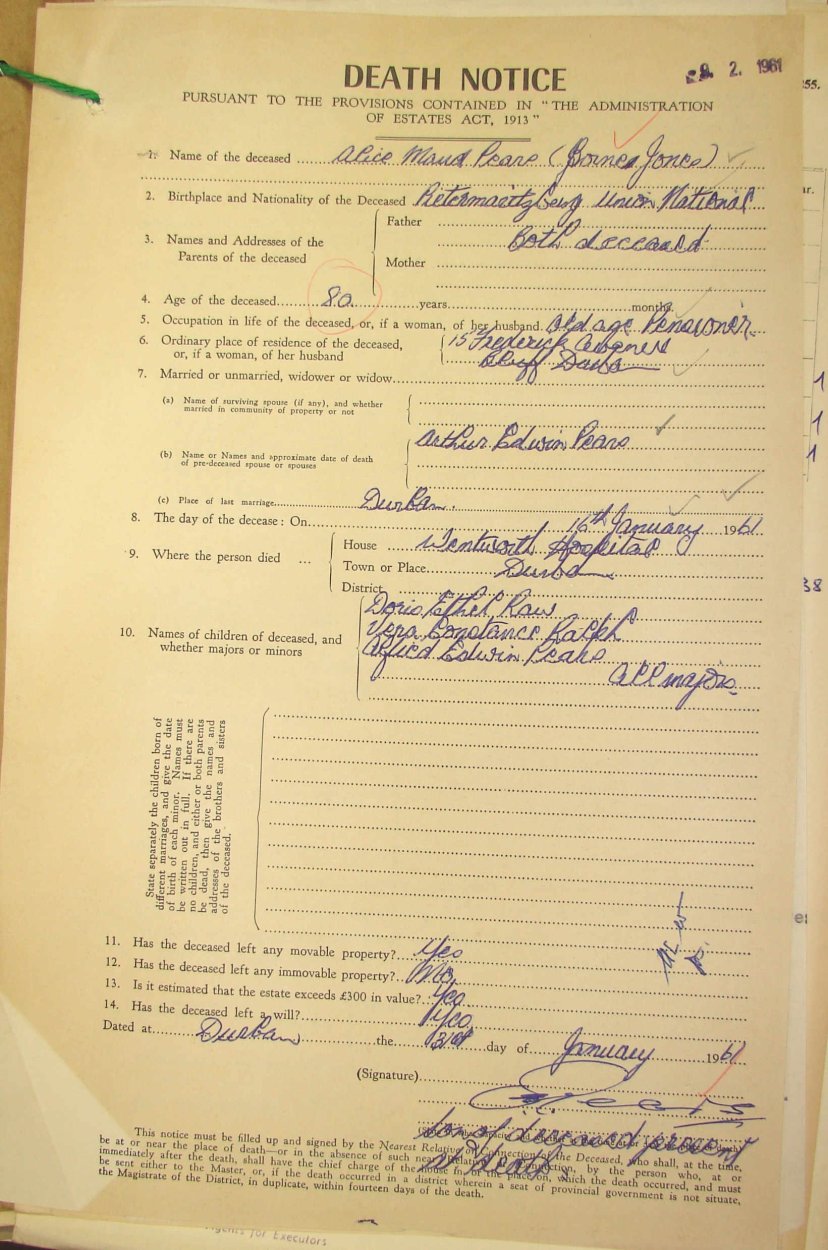 DEATH NOTICE
2. 1961
PURSUANT TO THE PROVISIONS CONTAINED IN "THE ADMINISTRATION
OF ESTATES ACT, 1913"
55.
1. Name of the deceased Alice Maud Pears (Jones)
2. Birthplace and Nationality of the Deceased Pietermaritzburg Union National
3. Names and Addresses of the
Parents of the deceased
Father
Both deceased
Mother
4. Age of the deceased 80 years months
5. Occupation in life of the deceased, or, if a woman, of her husband Old age Pensioner
6. Ordinary place of residence of the deceased,
or, if a woman, of her husband
15 Frederick
Bluff Durban
7. Married or unmarried, widower or widow
(a) Name of surviving spouse (if any), and whether
married in community of property or not
(b) Name or Names and approximate date of death
of pre-deceased spouse or spouses
Arthur Edwin Pears
(c) Place of last marriage Durban.
8. The day of the decease: On 16th January 1961
9. Where the person died ...
House Wentworth Hospital
Town or Place Durban
District
10. Names of children of deceased, and
whether majors or minors
Doris Ethel Raw
Vera Constance Ralph
Alfred Edwin Pears
all majors.
State separately the children born of
different marriages, and give the date
of birth of each minor. Names must
be written out in full. If there are
no children, and either or both parents
be dead, then give the names and
addresses of the brothers and sisters
of the deceased.
11. Has the deceased left any movable property? Yes
12. Has the deceased left any immovable property? No
13. Is it estimated that the estate exceeds £300 in value? Yes
14. Has the deceased left a will? Yes
Dated at Durban the 31st day of January 1961
(Signature)
Pears
son of deceased present
at death
This notice must be filled up and signed by the Nearest Relative or Connection of the Deceased, who shall, at the time,
be at or near the place of death—or in the absence of such near Relative or Connection, by the person who, at or
immediately after the death, shall have the chief charge of the house in, or the place on, which the death occurred, and must
be sent either to the Master, or, if the death occurred in a district wherein a seat of provincial government is not situate,
the Magistrate of the District, in duplicate, within fourteen days of the death.
Agents for Executors